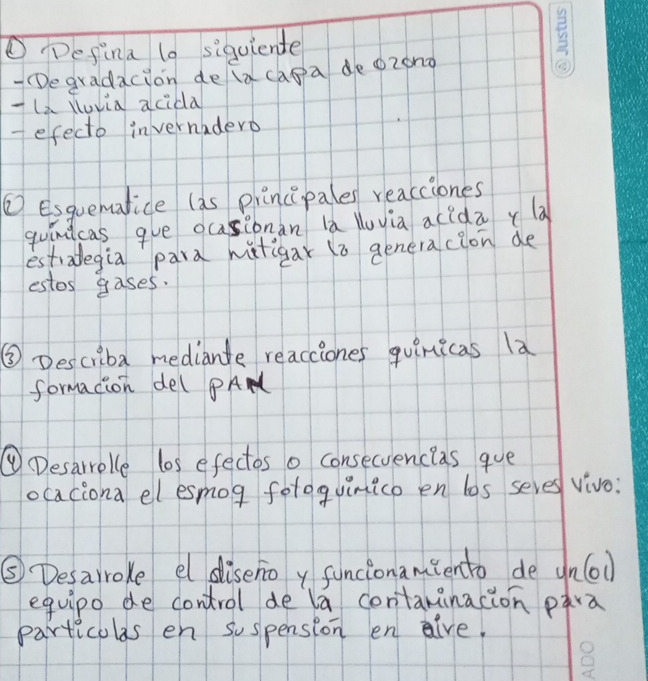 ① Defina lo siguiente
- Degradación de la capa de ozono
- la lluvia acida
- efecto invernadero
② Esquematice las principales reacciones
quimicas que ocasionan la lluvia acida y la
estrategia para mitigar la generacion de
estos gases.
③ Describa mediante reacciones quimicas la
formacion del PAN
④ Desarrolle los efectos o consecuencias que
ocaciona el esmog fotoquimico en los seres vivo:
⑤ Desarrolle el diseño y funcionamiento de un(01)
equipo de control de la contaminacion para
particulas en suspensión en aire.
Justus
ADO